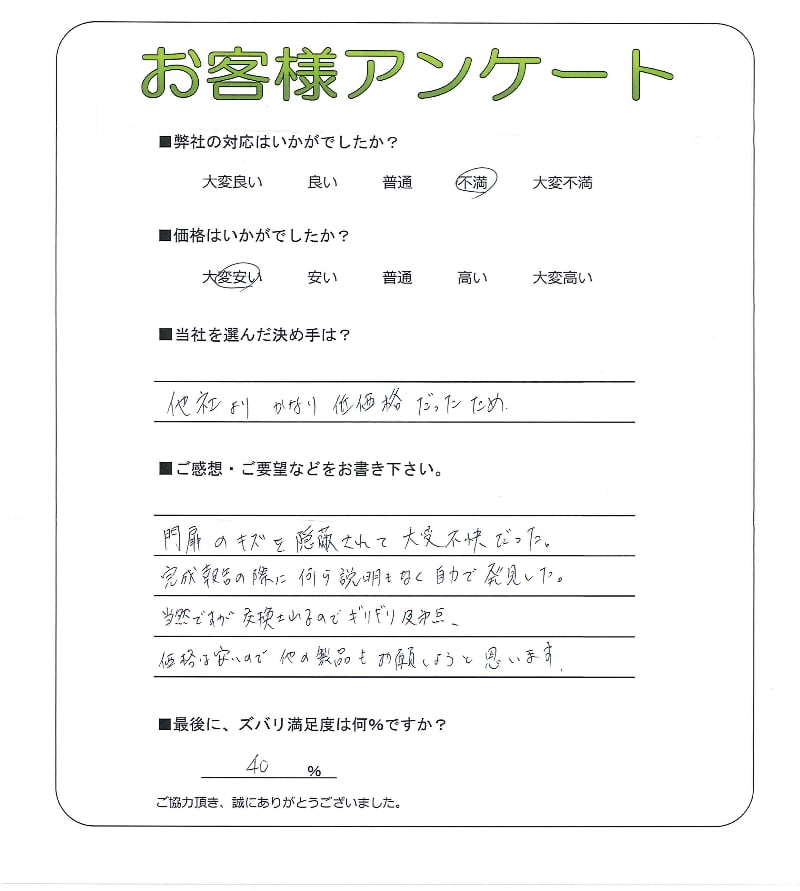 お客様アンケート
■弊社の対応はいかがでしたか？
大変良い 良い 普通 不満 大変不満
■価格はいかがでしたか？
大変安い 安い 普通 高い 大変高い
■当社を選んだ決め手は？
他社より かなり 低価格 だったため.
■ご感想・ご要望などをお書き下さい。
門扉のキズを隠蔽されて大変不快だった。
完成報告の際に何ら説明もなく自力で発見した。
当然ですが交換されるのでギリギリ及第点、
価格は安いので他の製品もお願しようと思います.
■最後に、ズバリ満足度は何%ですか？
40 %
ご協力頂き、誠にありがとうございました。